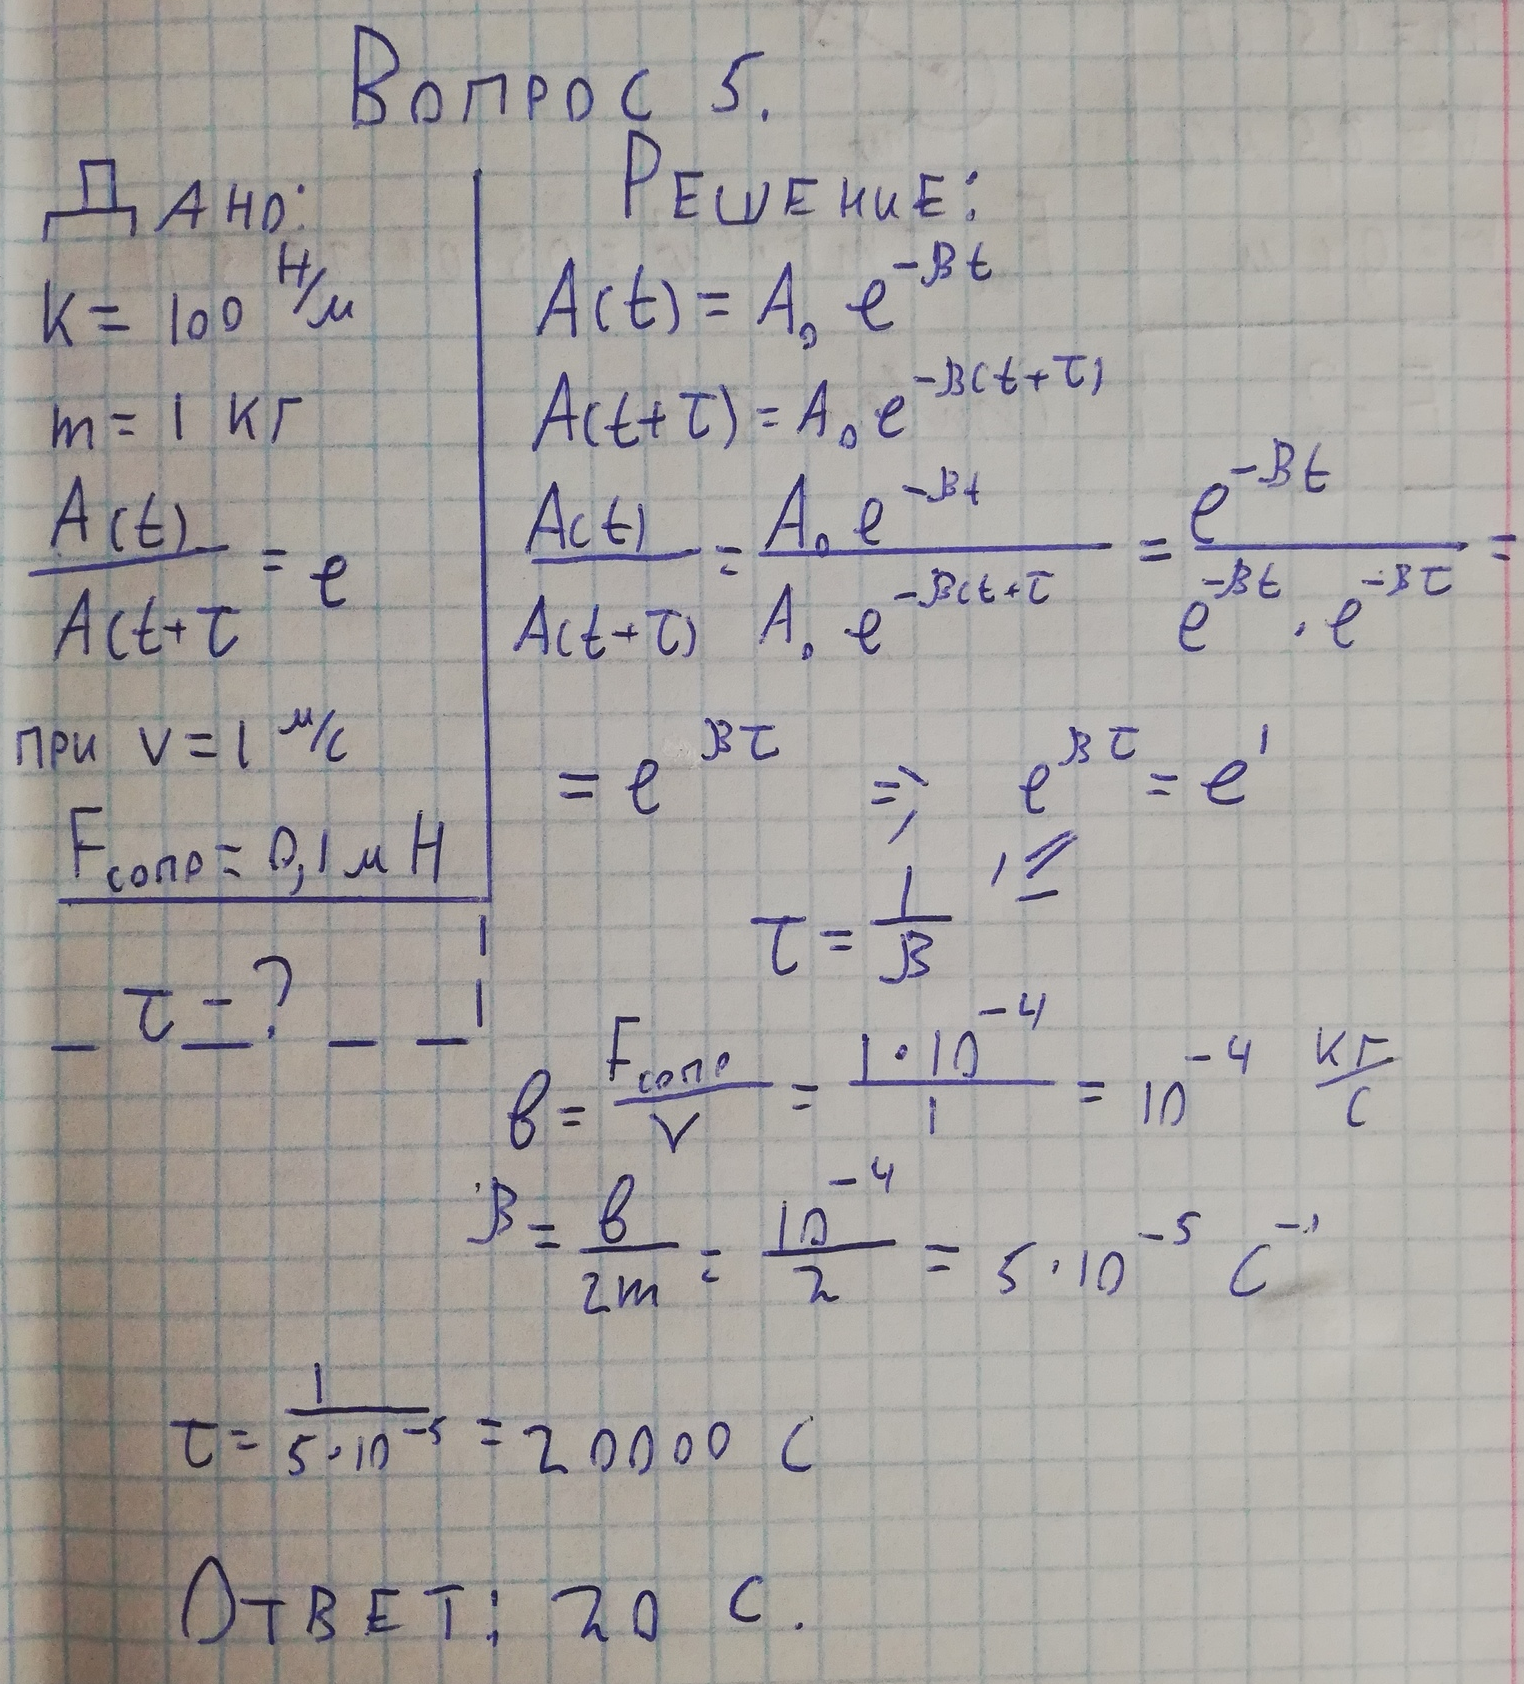 Вопрос 5.
Дано:
K = 100 Н/м
m = 1 кг
A(t) / A(t+τ = e
при v = 1 м/с
Fсопр = 0,1 мН
τ - ?
Решение:
A(t) = A₀ e^(-βt)
A(t+τ) = A₀ e^(-β(t+τ))
A(t) / A(t+τ) = A₀ e^(-βt) / A₀ e^(-β(t+τ) = e^(-βt) / e^(-βt) · e^(-βτ) =
= e^(βτ) => e^(βτ) = e¹
τ = 1/β
в = Fсопр / V = 1·10⁻⁴ / 1 = 10⁻⁴ кг/с
β = в / 2m = 10⁻⁴ / 2 = 5·10⁻⁵ с⁻¹
τ = 1 / 5·10⁻⁵ = 20000 с
Ответ: 20 с.